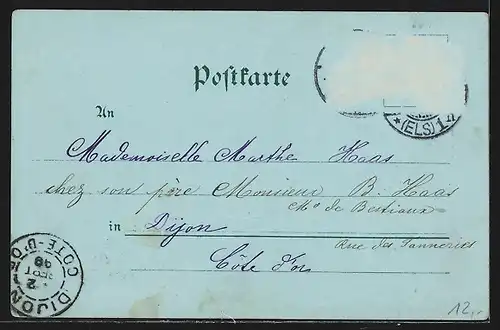 Postkarte
(ELS) 1
An
Mademoiselle Marthe Haas
chez son père Monsieur B. Haas
Md de Bestiaux
in Dijon
Rue des Tanneries
Côte d'or
DIJON
CÔTE-D'OR
12,-